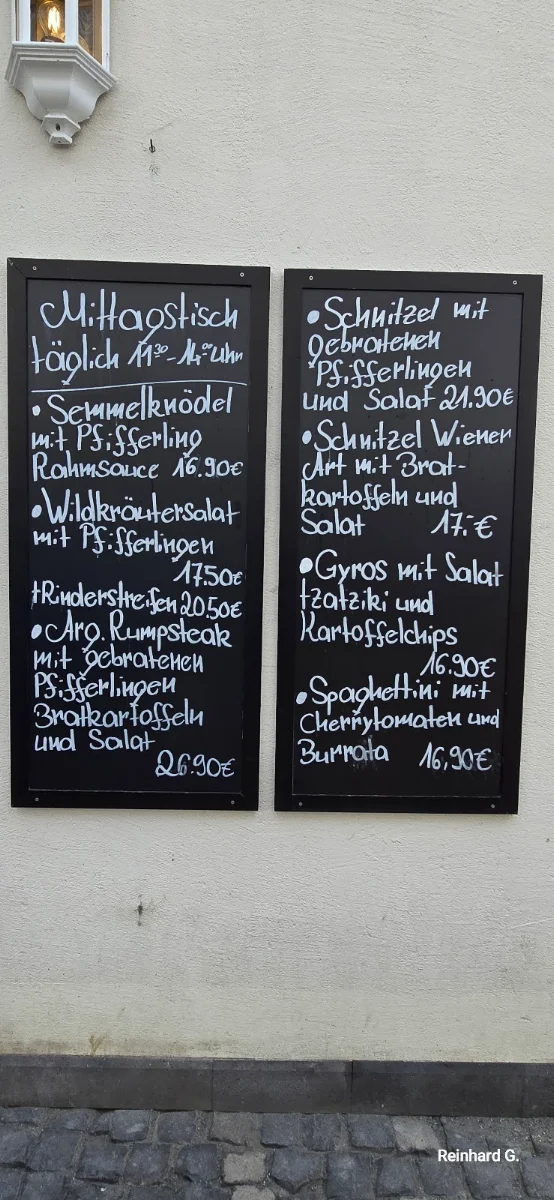 Mittagstisch
täglich 11³⁰-14⁰⁰Uhr
• Semmelknödel
mit Pfifferling
Rahmsauce 16.90€
• Wildkräutersalat
mit Pfifferlingen
17.50€
+Rinderstreifen 20.50€
• Arg. Rumpsteak
mit gebratenen
Pfifferlingen
Bratkartoffeln
und Salat
26.90€
• Schnitzel mit
gebratenen
Pfifferlingen
und Salat 21.90€
• Schnitzel Wiener
Art mit Brat-
kartoffeln und
Salat 17.-€
• Gyros mit Salat
tzatziki und
Kartoffelchips
16.90€
• Spaghettini mit
Cherrytomaten und
Burrata 16,90€
Reinhard G.